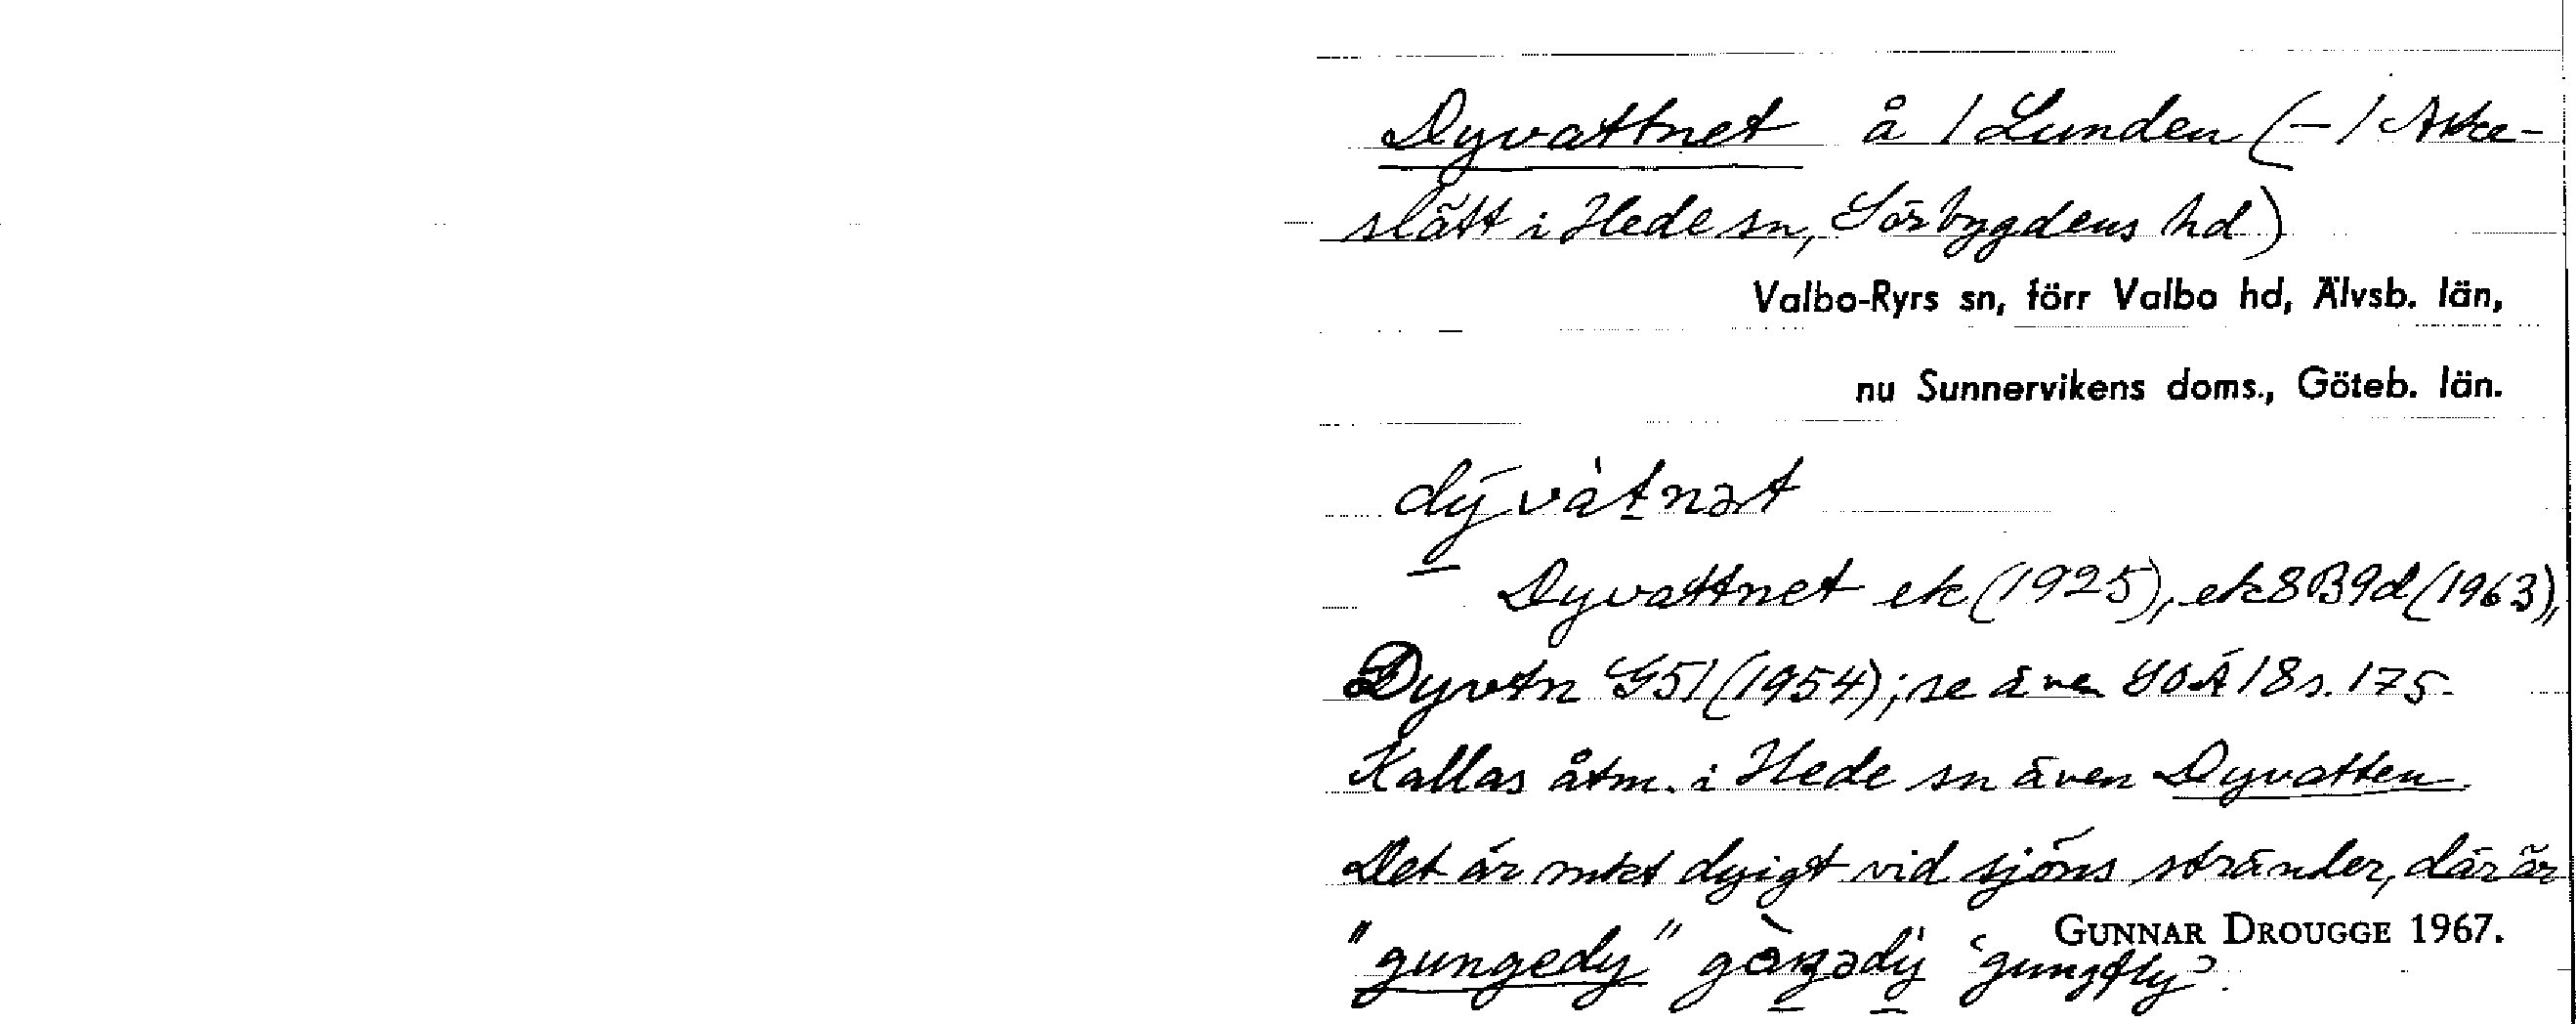 Dyvattnet å 1 Lunden (– 1 Akke-
slätt i Hede sn, Sörbygdens hd)
Valbo-Ryrs sn, förr Valbo hd, Älvsb. län,
nu Sunnervikens doms., Göteb. län.
dývàtnət
Dyvattnet ek (1925), ek 8B9d (1963),
Dyvtn G51 (1954); se även GOÅ 18 s. 175.
Kallas åtm. i Hede sn även Dyvatten
Det är mkt dyigt vid sjöns stränder, där är
"gungedy" 'gungfly'.
GUNNAR DROUGGE 1967.